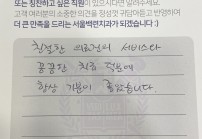 또는 칭찬하고 싶은 직원이 있으시다면 알려주세요.
고객 여러분의 소중한 의견을 경청하여 귀담아듣고 반영하여
더 큰 만족을 드리는 서울백련치과가 되겠습니다 :)
친절한 의료진의 서비스와
꼼꼼한 치료 덕분에
항상 기분이 좋았습니다.